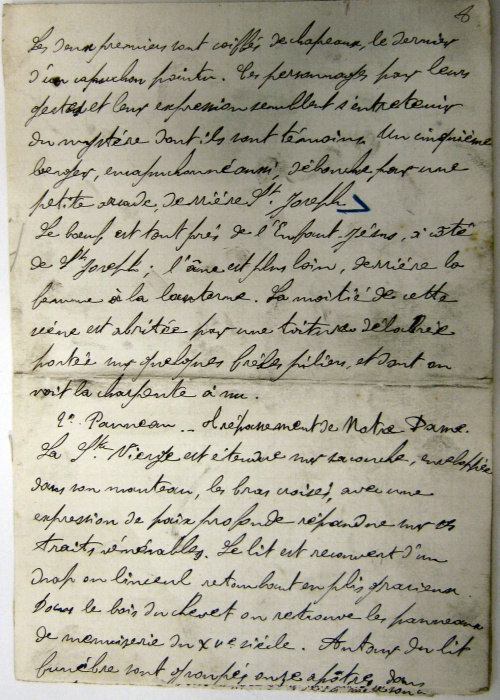 8
Les deux premiers sont coiffés de chapeaux, le dernier
d'un capuchon pointu. Ces personnages par leurs
gestes et leur expression semblent s'entretenir
du mystère dont ils sont témoins. Un cinquième
berger, encapuchonné aussi, débouche par une
petite arcade, derrière St. Joseph
Le bœuf est tout près de l'Enfant Jésus, à côté
de St. Joseph ; l'âne est plus loin, derrière la
femme à la lanterne. La moitié de cette
scène est abritée par une toiture délabrée
portée sur quelques frêles piliers, et dont on
voit la charpente à nu.
2e. Panneau _ Trépassement de Notre Dame.
La Ste. Vierge est étendue sur sa couche, enveloppée
dans son manteau, les bras croisés, avec une
expression de paix profonde répandue sur ses
traits vénérables. Le lit est recouvert d'un
drap ou linceul retombant en plis gracieux.
Dans le bois du chevet on retrouve les panneaux
de menuiserie du XVe siècle. Autour du lit
funèbre sont groupés onze apôtres dans